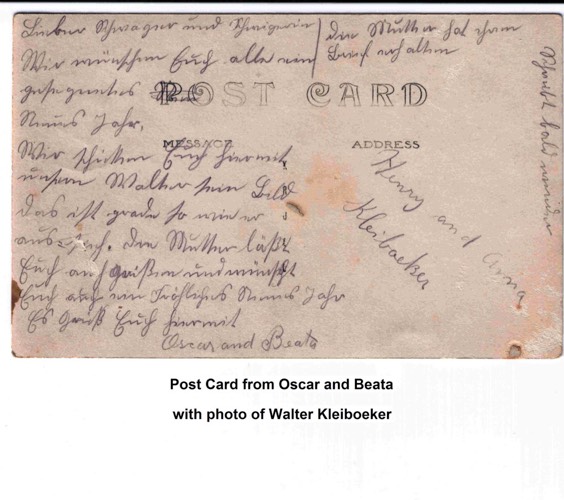 Lieber Schwager und Schwigerin
Wir wünschen Euch alle ein
gesegnetes
Neues Jahr,
Wir schicken Euch hiermit
unsern Walter sein Bild
das ist grade so wie er
aussieht. Die Mutter läßt
Euch auch grüßen und wünscht
Euch auch ein Fröhliches Neues Jahr
Es Grüß Euch hiermit
Oscar and Beata
Die Mutter hat ihren
Brief erhalten
Schreibt bald wieder
POST CARD
MESSAGE
ADDRESS
Henry and Anna
Kleiboeker
Post Card from Oscar and Beata
with photo of Walter Kleiboeker